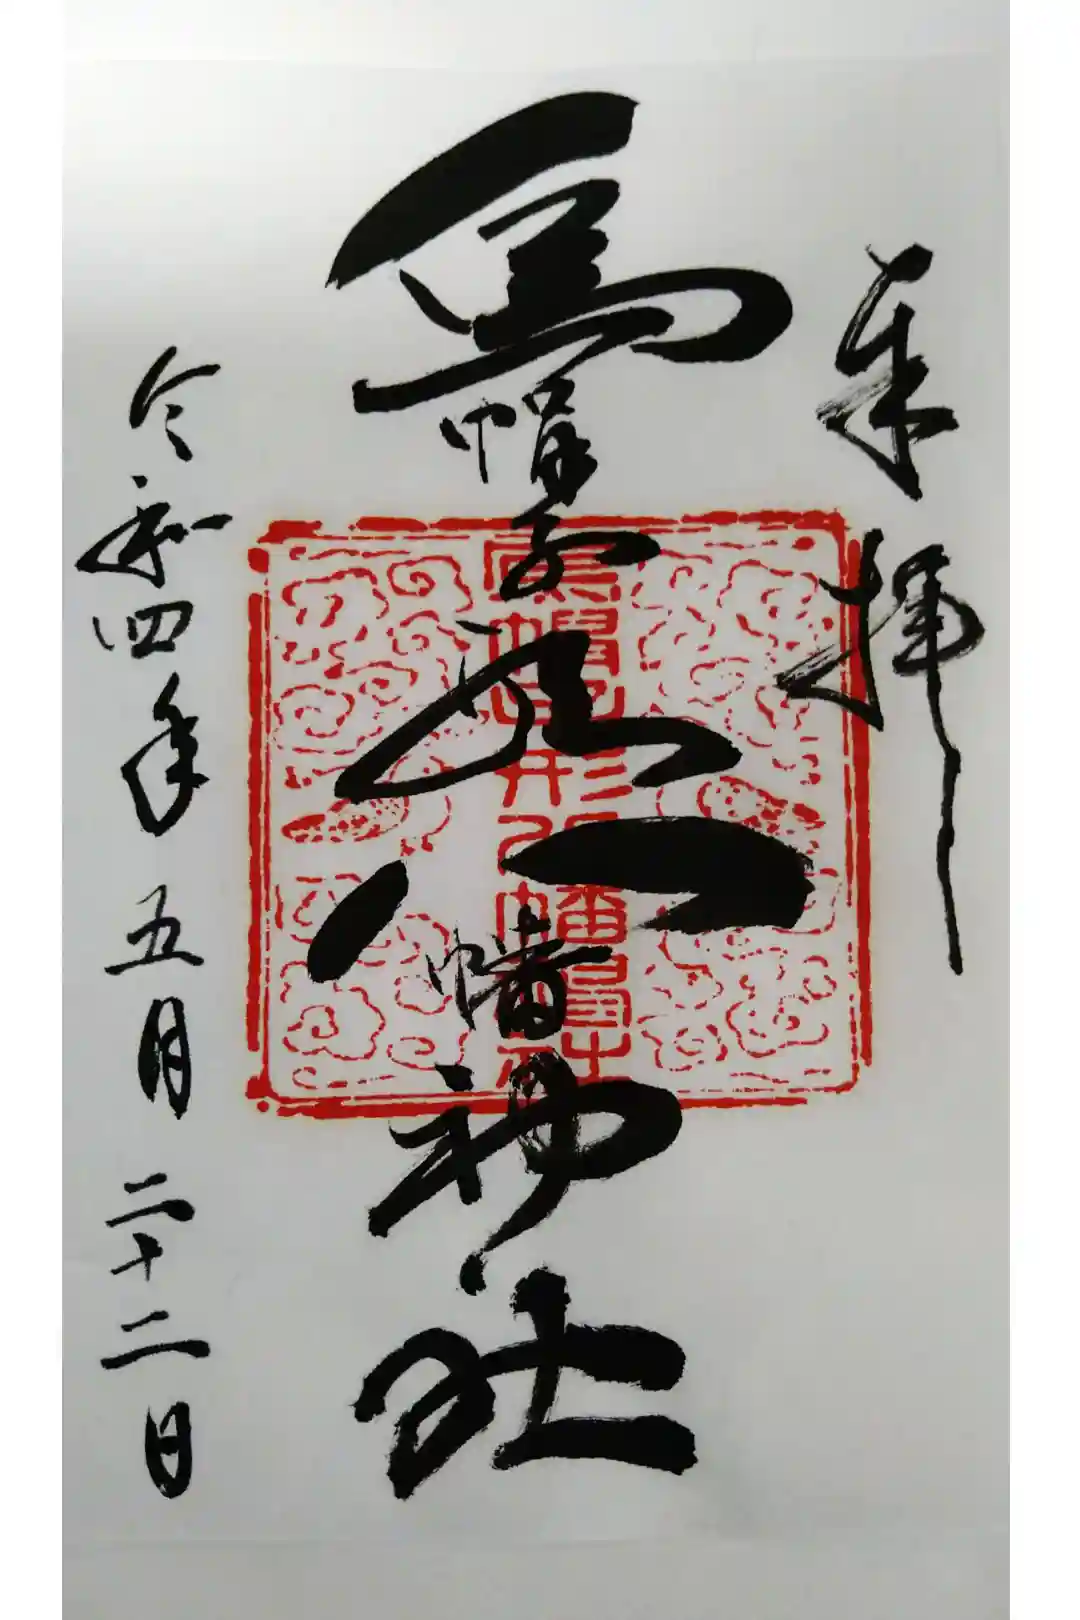 奉拝
烏帽子形八幡神社
令和四年五月二十二日
烏帽子形八幡神社